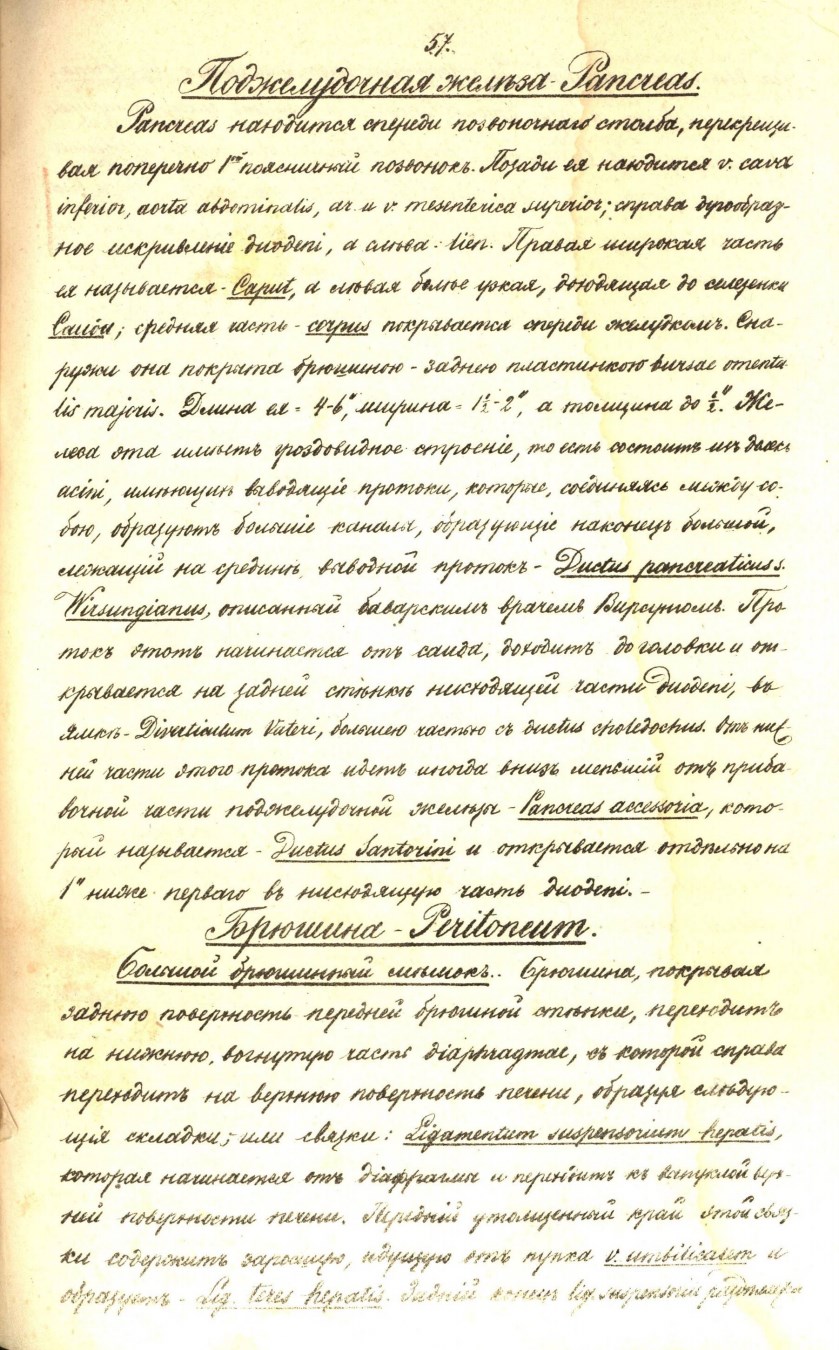 57.
Поджелудочная желѣза - Pancreas.
Pancreas находится спереди позвоночнаго столба, перекрещи-
вая поперечно 1ый поясничный позвонокъ. Позади ея находится v. cava
inferior, aorta abdominalis, ar. и v. mesenterica superior; справа дугообраз-
ное искривленіе duodeni, а слѣва - lien. Правая широкая часть
ея называется - Caput, а лѣвая болѣе узкая, доходящая до селезенки
Cauda; средняя часть - corpus покрывается спереди желудкомъ. Сна-
ружи она покрыта брюшиною - заднею пластинкою bursae omenta
lis majoris. Длина ея = 4-6", ширина = 1½-2", а толщина до ½". Же-
леза эта имѣетъ гроздовидное строеніе, то есть состоитъ изъ
acini, имѣющихъ выводящіе протоки, которые, соединяясь между со-
бою, образуютъ большіе каналы, образующіе наконецъ большой,
лежащій на срединѣ, выводной протокъ - Ductus pancreaticus s.
Wirsungianus, описанный баварскимъ врачемъ Вирсунгомъ. Про
токъ этотъ начинается отъ cauda, доходитъ до головки и от-
крывается на задней стѣнкѣ нисходящей части duodeni, въ
ямкѣ - Diverticulum Vateri, большею частью съ ductus choledochus. Отъ ниж-
ней части этого протока идетъ иногда внизъ меньшій отъ приба-
вочной части поджелудочной желѣзы - Pancreas accessoria, кото-
рый называется - Ductus Santorini и открывается отдѣльно на
1" ниже перваго въ нисходящую часть duodeni. -
Брюшина - Peritoneum.
Большой брюшинный мѣшокъ. Брюшина, покрывая
заднюю поверхность передней брюшной стѣнки, переходитъ
на нижнюю, вогнутую часть diaphragmae, съ которой справа
переходитъ на верхнюю поверхность печени, образуя слѣдую-
щія складки, или связки: Ligamentum suspensorium hepatis,
которая начинается отъ діафрагмы и переходитъ къ выпуклой верх-
ней поверхности печени. Передній утолщенный край этой связ-
ки содержитъ заросшую, идущую отъ пупка v. umbilicalem и
образуетъ - Lig. teres hepatis. Задній конецъ lig. suspensorii